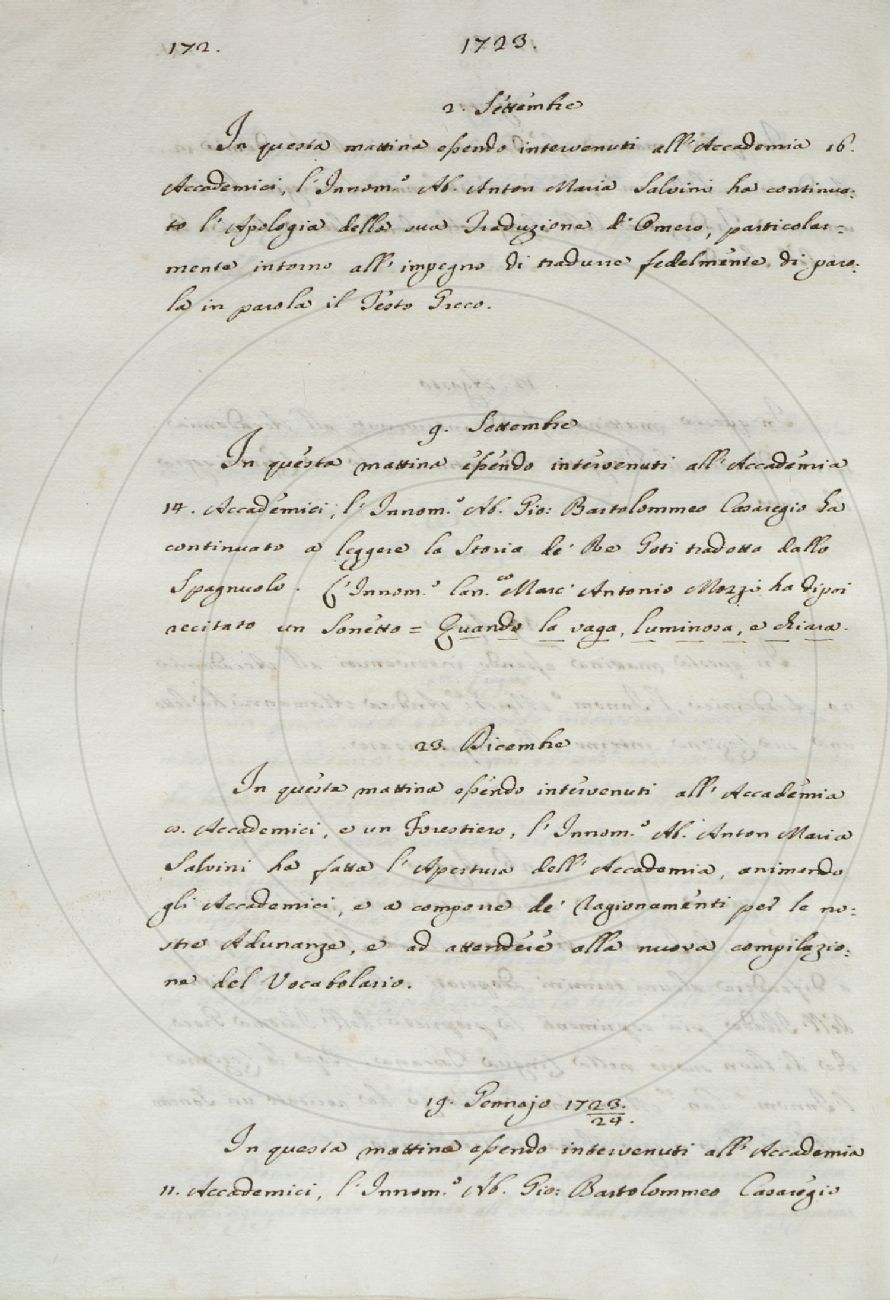 172. 1723.
2. Settembre
In questa mattina essendo intervenuti all'Accademia 16.
Accademici, l'Innom.º Ab. Anton Maria Salvini ha continua:
to l'Apologia della sua Traduzione d'Omero, particolar=
mente intorno all'impegno di tradurre fedelmente di paro:
la in parola il Testo Greco.
9. Settembre
In questa mattina essendo intervenuti all'Accademia
14. Accademici, l'Innom.º Ab. Gio: Bartolommeo Casaregio ha
continuato a leggere la Storia de' Re Goti tradotta dallo
Spagnuolo. L'Innom.º Can.co Marc'Antonio Mozzi ha dipoi
recitato un Sonetto = Quando la vaga, luminosa, e chiara.
23. Dicembre
In questa mattina essendo intervenuti all'Accademia
Accademici, e un Forestiero, l'Innom.º Ab. Anton Maria
Salvini ha fatta l'Apertura dell'Accademia, animando
gli Accademici, e a comporre de' Ragionamenti per le no:
stre Adunanze, e ad attendere alla nuova compilazio:
ne del Vocabolario.
19. Gennajo 1723./24.
In questa mattina essendo intervenuti all'Accademia
11. Accademici, l'Innom.º Ab. Gio: Bartolommeo Casaregio